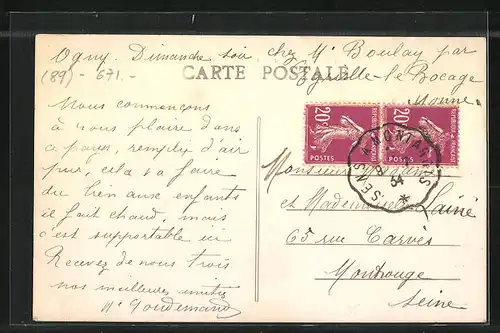 Ogny. Dimanche soir, chez Mr Boulay par
(89) - 671. - Egriselle-le-Bocage
Yonne.
CARTE POSTALE
Nous commençons
à nous plaire dans
ce pays, remplis d'air
pur, cela va faire
du bien aux enfants
il fait chaud, mais
c'est supportable ici
Recevez de nous trois
nos meilleures amitiés
20c
20c
REPUBLIQUE FRANÇAISE
POSTES
POSTES
SENS A MONTARGIS
34
Monsieur
et Mademoiselle Lainé
65 rue Carvès
Montrouge
Seine